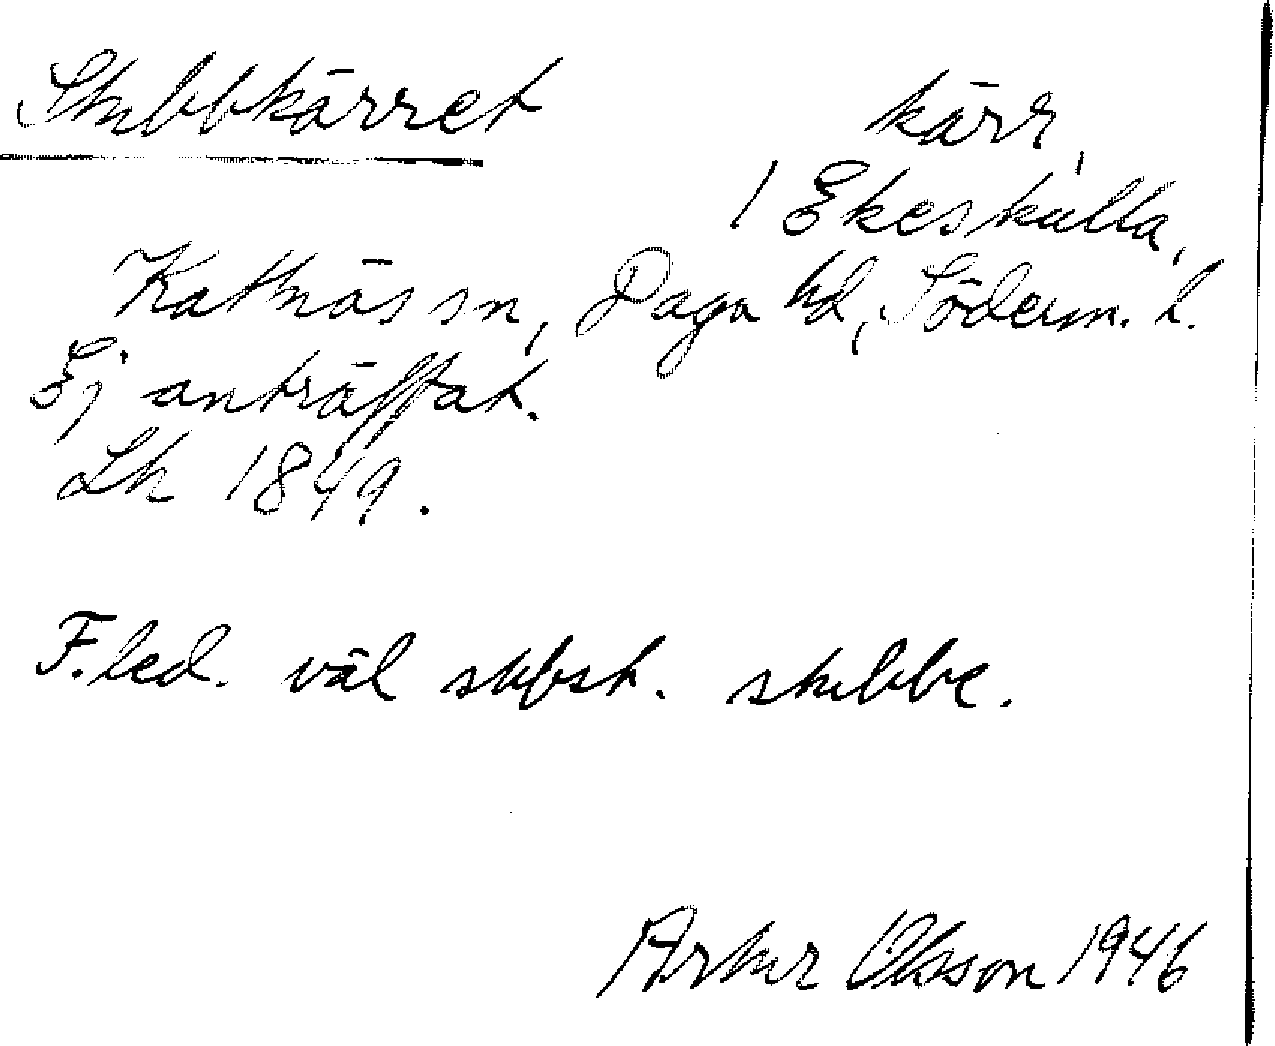 Stubbkärret kärr,
1 Ekeskulla,
Kattnäs sn, Daga hd, Söderm. l.
Ej anträffat.
Lh 1849.
F.led. väl subst. stubbe.
Artur Olsson 1946